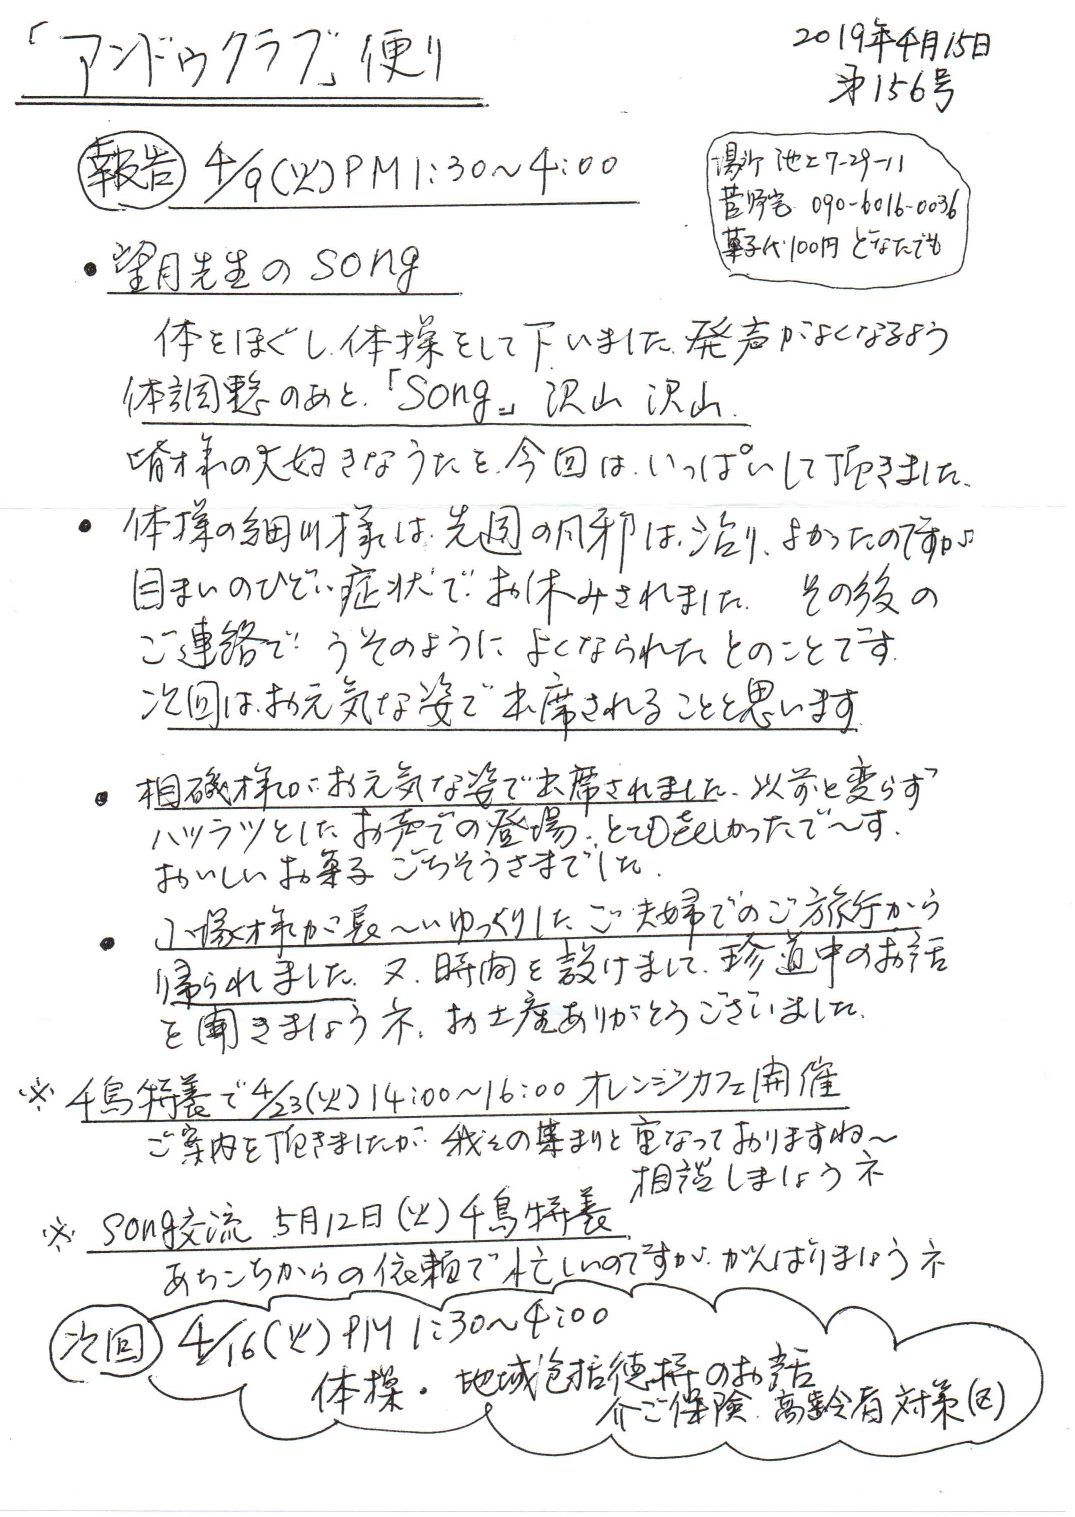 「アンドゥクラブ」便り
2019年4月15日
第156号
報告 4/9(火)PM1:30〜4:00
場所 池上7-29-11
菅野宅 090-6016-0036
菓子代100円 どなたでも
・望月先生のsong
体をほぐし、体操をして下いました。発声がよくなるよう
体調整のあと、「Song」沢山 沢山、
皆様の大好きなうたを、今回は、いっぱいして頂きました。
・体操の細川様は、先週の風邪は、治り、よかったのですが、
目まいのひどい症状で、お休みされました。 その後の
ご連絡で、うそのように よくなられた とのことです。
次回は、お元気な姿で出席されることと思います
・相磯様がお元気な姿で出席されました。以前と変らず
ハツラツとした お声での登場、とても嬉しかったで〜す。
おいしいお菓子 ごちそうさまでした。
・小塚様が長〜いゆっくりした ご夫婦でのご旅行から
帰られました。又、時間を設けまして、珍道中のお話
を聞きましょうネ。お土産ありがとうございました。
※ 千鳥特養で4/23(火)14:00〜16:00 オレンジカフェ開催
ご案内を頂きましたが 我々の集まりと重なっておりますね〜
相談しましょうネ
※ song交流 5月12日(火)千鳥特養
あちこちからの依頼で忙しいのですが、がんばりましょうネ
次回 4/16(火)PM1:30〜4:00
体操・地域包括徳持のお話
介ご保険、高齢者対策(区)